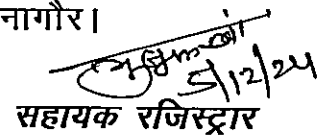 नागौर।
5/12/24
सहायक रजिस्ट्रार